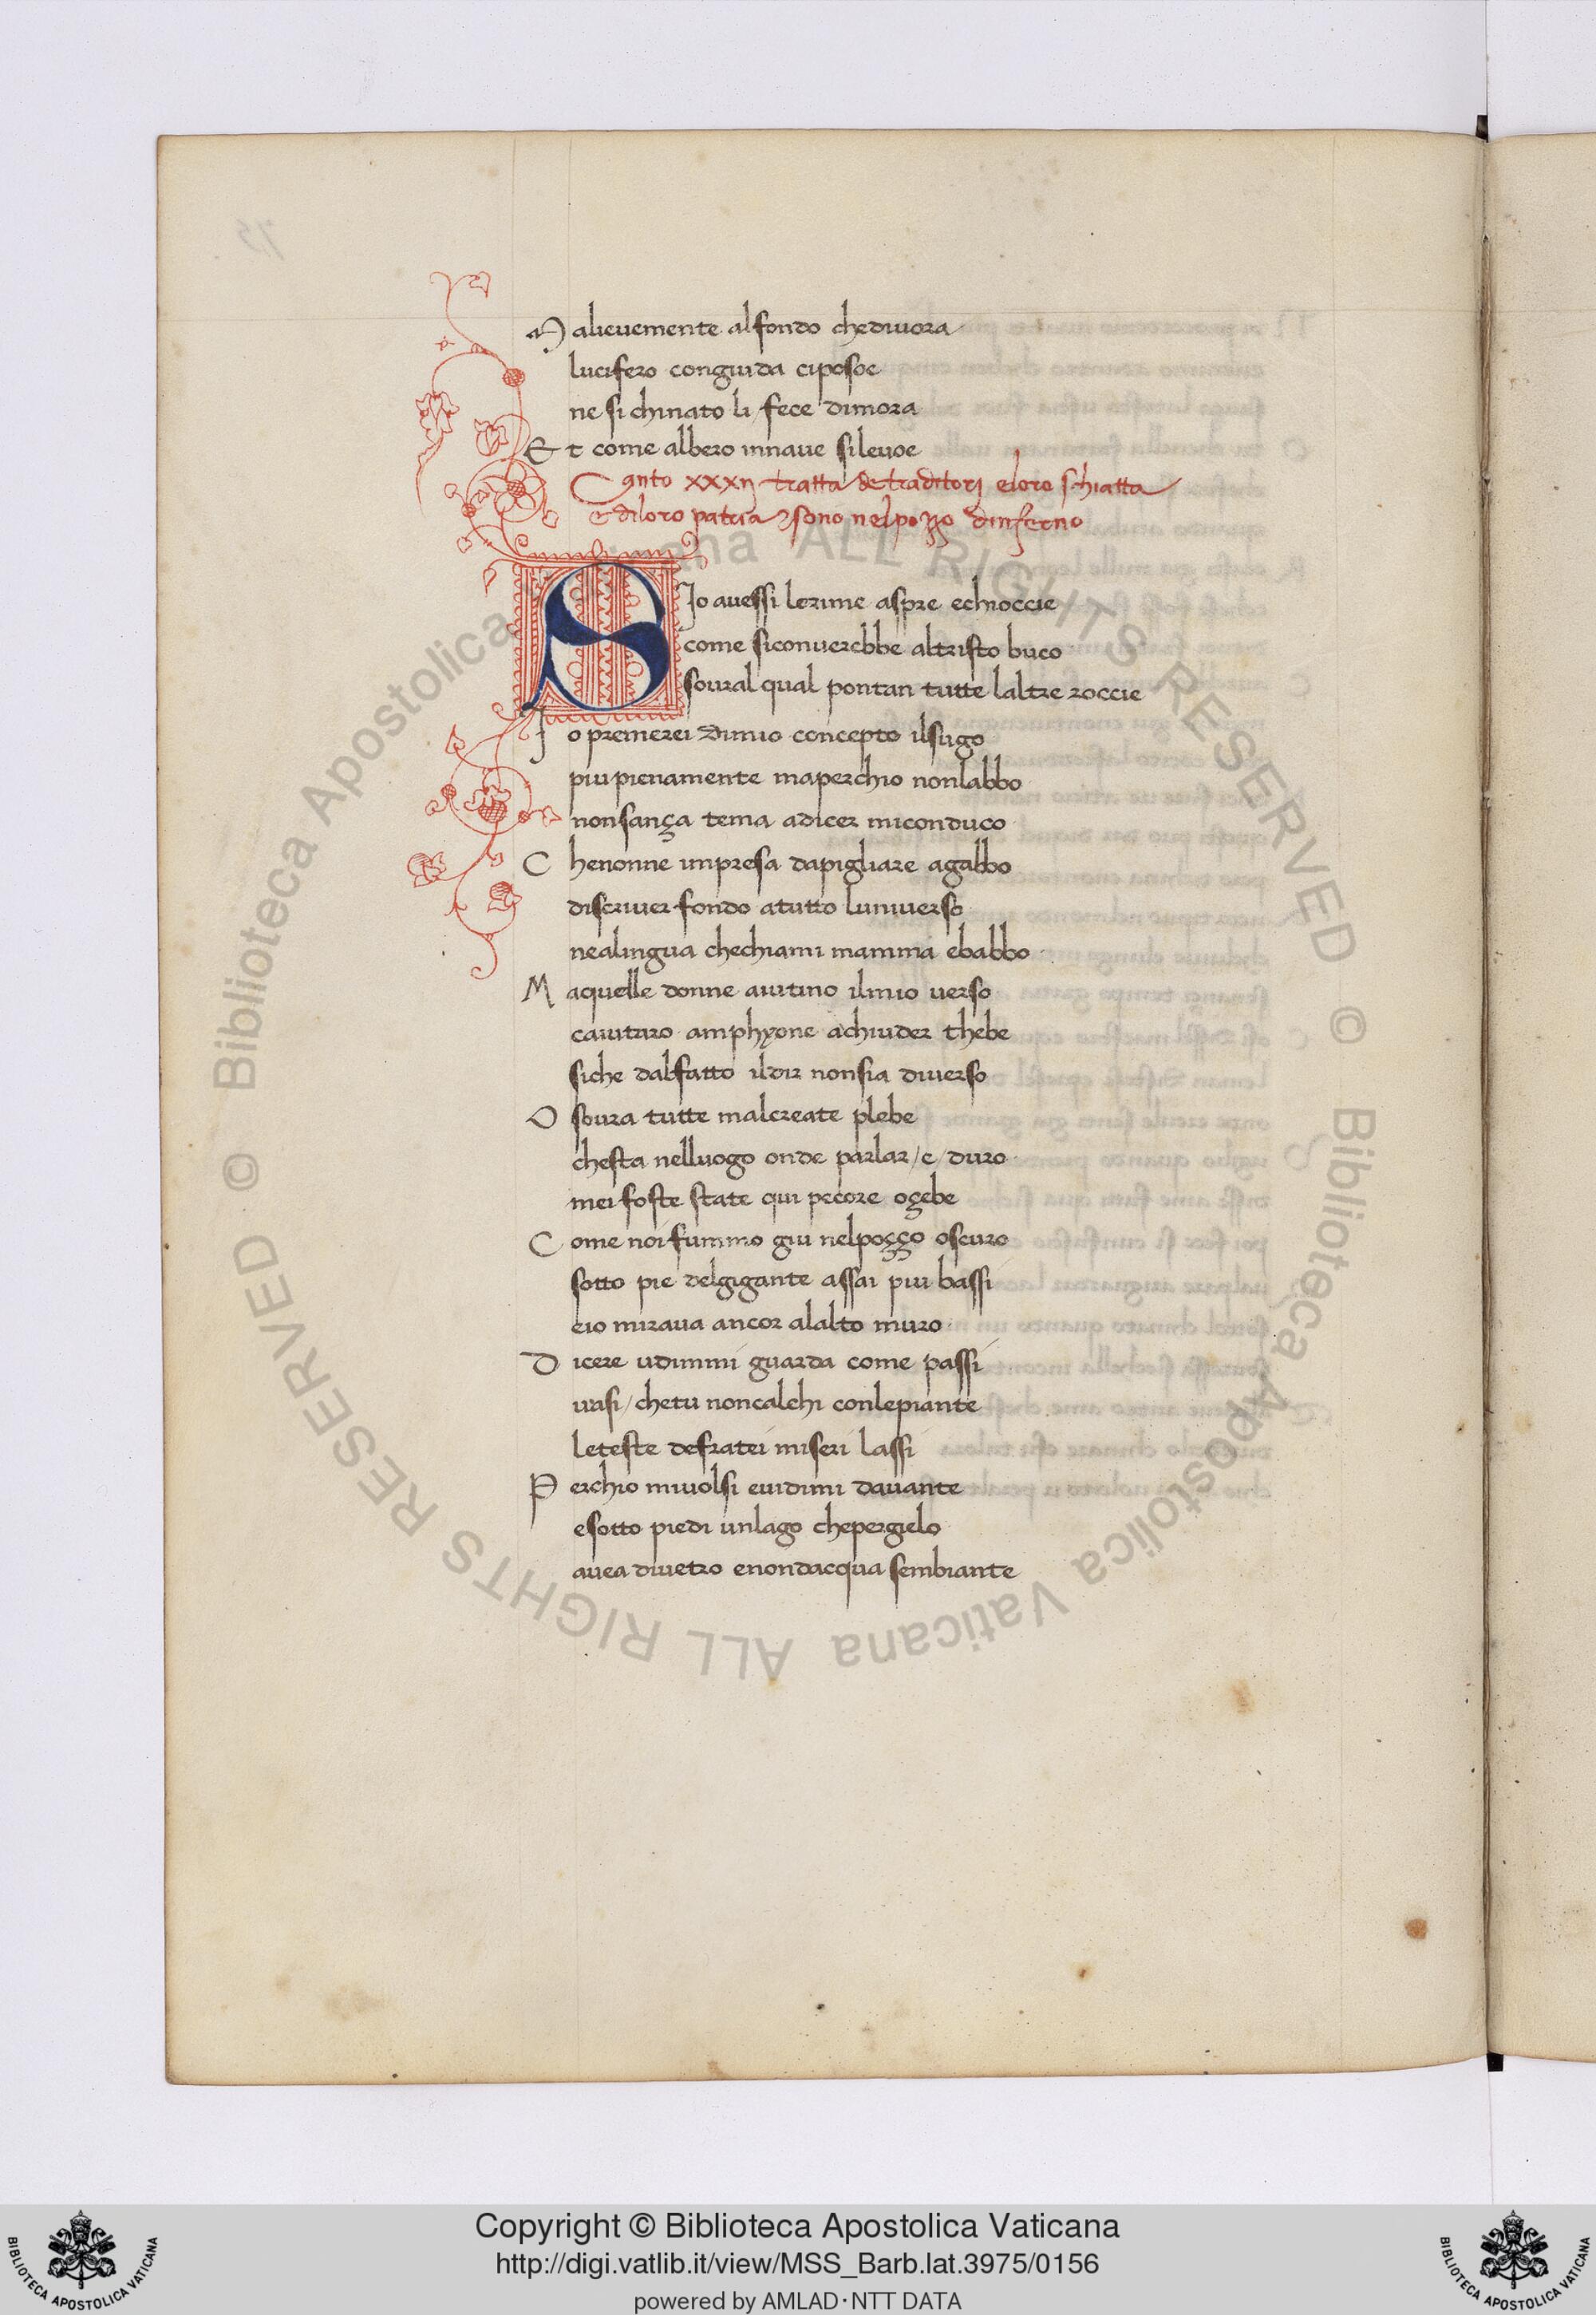 M alievemente alfondo chedivora
lucifero conguida ciposoe
ne si chinato li / fece dimora
E t come albero innave silevoe
Canto xxxij tratta de traditorj eloro schiatta
e diloro patria 7 sono nelpozzo dinferno
S Jo avessi lerime aspre echioccie
come siconverebbe altristo buco
sovral qual pontan tutte laltre roccie
J o premerei dimio concepto ilsugo
piu pienamente maperchio nonlabbo
nonsança tema adicer miconduco
C henonne impresa dapigliare agabbo
discriver fondo atutto luniverso
nealingua chechiami mamma ebabbo
M aquelle donne aiutino ilmio verso
caiutaro amphyone achiuder thebe
siche dalfatto ildir nonsia diverso
O sovra tutte malcreate plebe
chesta nelluogo onde parlar / e / duro
mei foste state qui pecore oçebe
C ome noi fummo giu nelpoçço oscuro
sotto pie delgigante assai piu bassi
eio mirava ancor alalto muro
D icere udimmi guarda come passi
vasi / chetu noncalchi conlepiante
leteste defratei miseri lassi
P erchio mivolsi evidimi davante
esotto piedi unlago chepergielo
avea divetro enondacqua sembiante
© Biblioteca Apostolica Vaticana ALL RIGHTS RESERVED © Biblioteca Apostolica Vaticana ALL RIGHTS RESERVED
Copyright © Biblioteca Apostolica Vaticana
http://digi.vatlib.it/view/MSS_Barb.lat.3975/0156
powered by AMLAD·NTT DATA
BIBLIOTECA APOSTOLICA VATICANA
BIBLIOTECA APOSTOLICA VATICANA